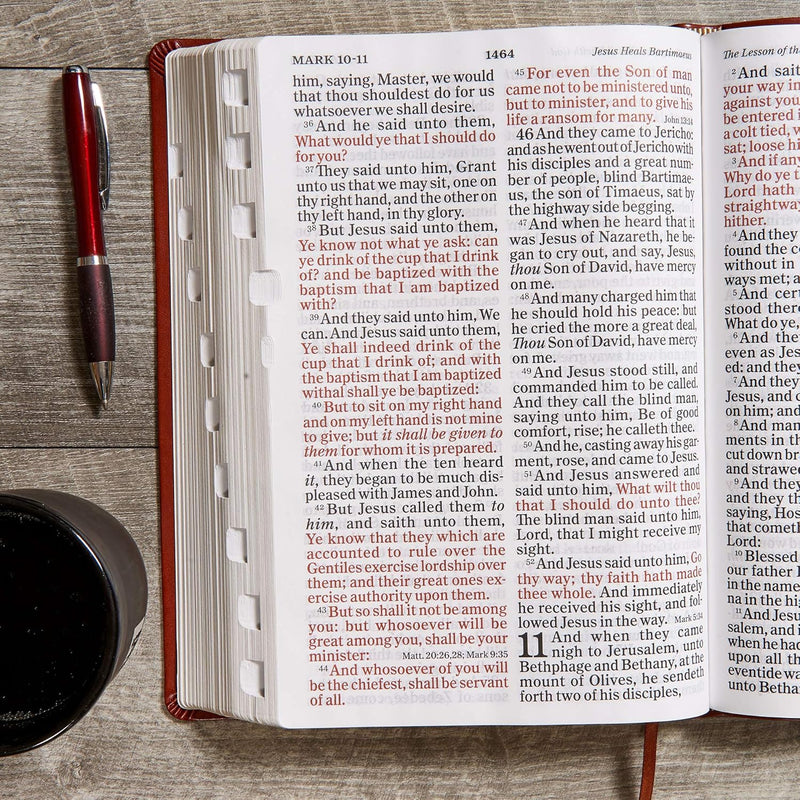 MARK 10-11
1464
Jesus Heals Bartimaeus
him, saying, Master, we would
that thou shouldest do for us
whatsoever we shall desire.
36 And he said unto them,
What would ye that I should do
for you?
37 They said unto him, Grant
unto us that we may sit, one on
thy right hand, and the other on
thy left hand, in thy glory.
38 But Jesus said unto them,
Ye know not what ye ask: can
ye drink of the cup that I drink
of? and be baptized with the
baptism that I am baptized
with?
39 And they said unto him, We
can. And Jesus said unto them,
Ye shall indeed drink of the
cup that I drink of; and with
the baptism that I am baptized
withal shall ye be baptized:
40 But to sit on my right hand
and on my left hand is not mine
to give; but it shall be given to
them for whom it is prepared.
41 And when the ten heard
it, they began to be much dis-
pleased with James and John.
42 But Jesus called them to
him, and saith unto them,
Ye know that they which are
accounted to rule over the
Gentiles exercise lordship over
them; and their great ones ex-
ercise authority upon them.
43 But so shall it not be among
you: but whosoever will be
great among you, shall be your
minister: Matt. 20:26,28; Mark 9:35
44 And whosoever of you will
be the chiefest, shall be servant
of all.
45 For even the Son of man
came not to be ministered unto,
but to minister, and to give his
life a ransom for many. John 13:14
46 And they came to Jericho:
and as he went out of Jericho with
his disciples and a great num-
ber of people, blind Bartimae-
us, the son of Timaeus, sat by
the highway side begging.
47 And when he heard that it
was Jesus of Nazareth, he be-
gan to cry out, and say, Jesus,
thou Son of David, have mercy
on me.
48 And many charged him that
he should hold his peace: but
he cried the more a great deal,
Thou Son of David, have mercy
on me.
49 And Jesus stood still, and
commanded him to be called.
And they call the blind man,
saying unto him, Be of good
comfort, rise; he calleth thee.
50 And he, casting away his gar-
ment, rose, and came to Jesus.
51 And Jesus answered and
said unto him, What wilt thou
that I should do unto thee?
The blind man said unto him,
Lord, that I might receive my
sight.
52 And Jesus said unto him, Go
thy way; thy faith hath made
thee whole. And immediately
he received his sight, and fol-
lowed Jesus in the way. Mark 5:34
11 And when they came
nigh to Jerusalem, unto
Bethphage and Bethany, at the
mount of Olives, he sendeth
forth two of his disciples,
The Lesson of the
2 And sait
your way in
against you
be entered i
a colt tied, w
sat; loose hi
3 And if any
Why do ye t
Lord hath
straightway
hither.
4 And they
found the co
without in
ways met; a
5 And cert
stood there
What do ye,
6 And they
even as Jes
ed: and they
7 And they
Jesus, and c
on him; and
8 And man
ments in th
cut down br
and strawed
9 And they
and they th
saying, Hos
that cometh
Lord:
10 Blessed
our father
in the name
na in the hi
11 And Jesu
salem, and i
when he had
upon all th
eventide wa
unto Betha